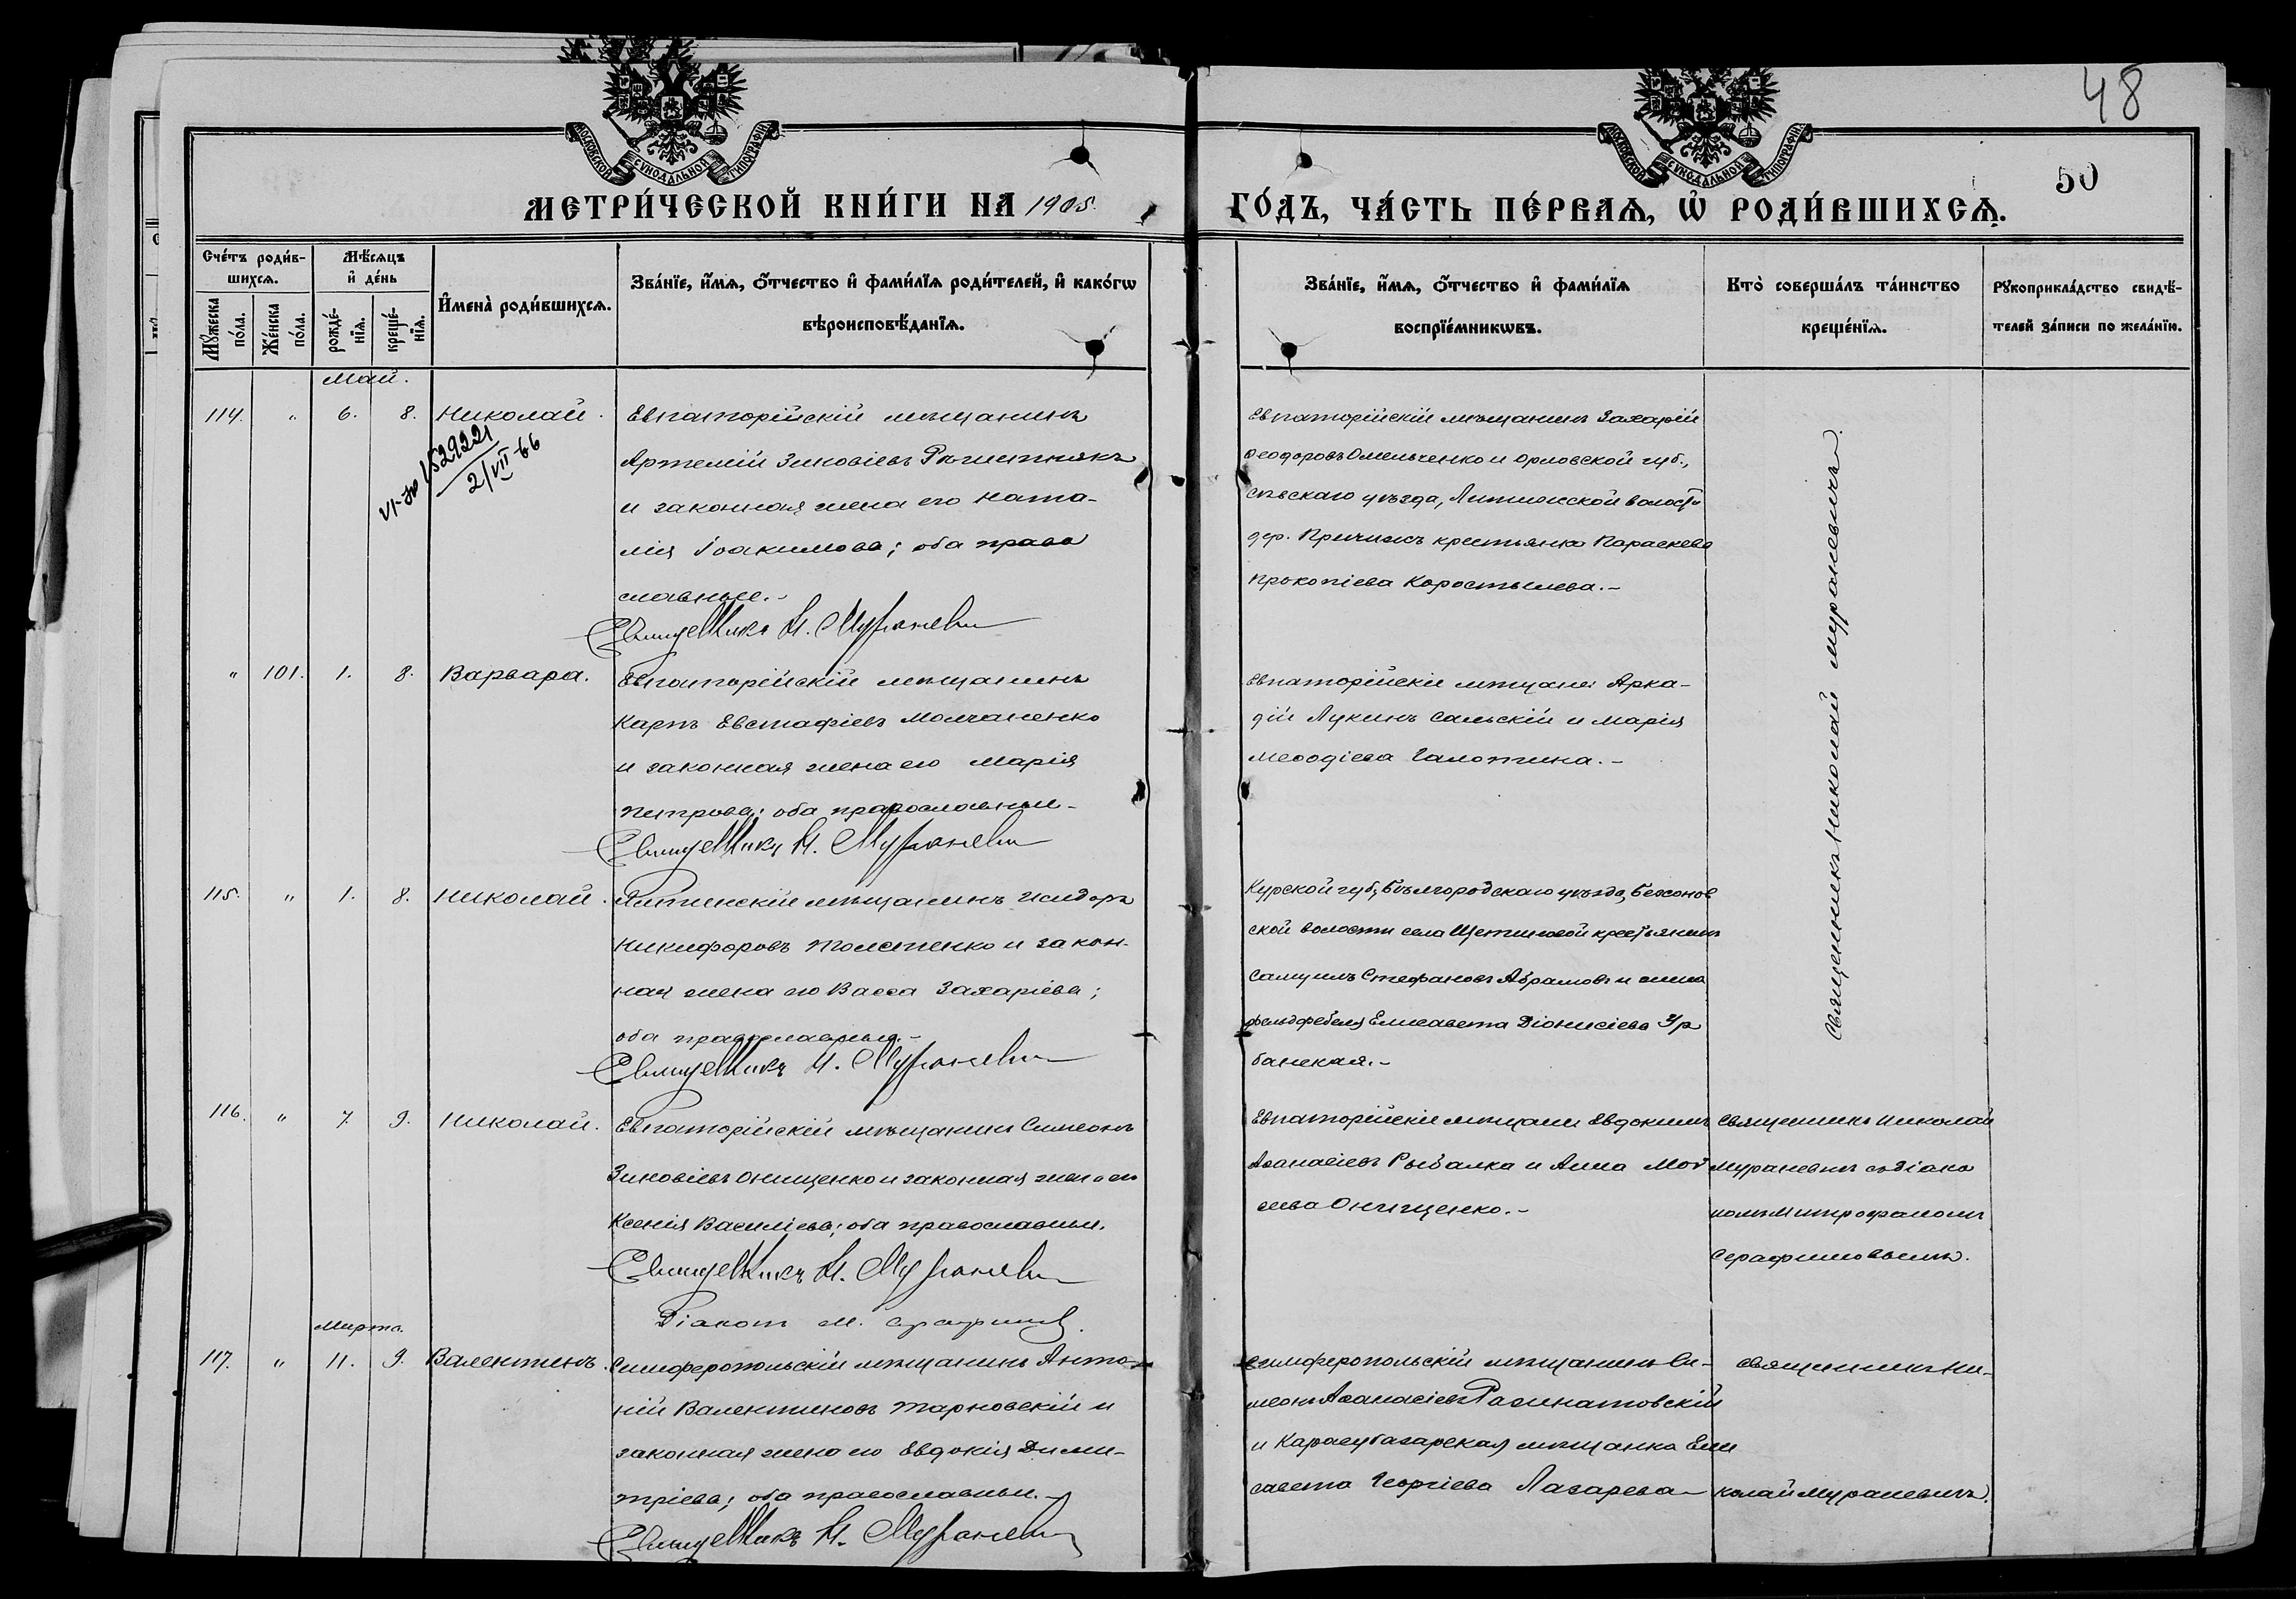 48
50
МОСКОВСКОЙ СѴНОДАЛЬНОЙ ТИПОГРАФІИ
МОСКОВСКОЙ СѴНОДАЛЬНОЙ ТИПОГРАФІИ
МЕТРИ́ЧЕСКОЙ КНИ́ГИ НА 1905.
ГО́ДЪ, ЧА́СТЬ ПЕ́РВАѦ, Ѡ҆ РОДИ́ВШИХСѦ.
Сче́тъ роди́в-
шихсѧ.
Мꙋжеска по́ла.
Же́нска по́ла.
Мѣ́сѧцъ
и҆ де́нь
рожде́-нїѧ.
креще́-нїѧ.
И҆мена̀ роди́вшихсѧ.
Зва́нїе, и҆́мѧ, ѻ҆́тчество и҆ фами́лїѧ роди́телей, и҆ како́гѡ
вѣроисповѣ́данїѧ.
Зва́нїе, и҆́мѧ, ѻ҆́тчество и҆ фами́лїѧ
воспрїе́мникѡвъ.
Кто̀ соверша́лъ та́инство
креще́нїѧ.
Рꙋкоприкла́дство свидѣ́-
телей за́писи по жела́нїю.
Май.
114. " 6. 8. Николай.
529221
2/VII-66
Евпаторійскій мѣщанинъ
Артемій Зиновіевъ
и законная жена его Ната-
лія Іоакимова; оба право
славные.-
Священникъ Н. Мураневич
Евпаторійскій мѣщанинъ Захарій
Ѳеодоровъ Омельченко и Орловской губ.,
Сѣвскаго уѣзда, волости
дер. крестьянка Параскева
Прокопіева Коростылева.-
Священникъ Николай Мураневичъ.
" 101. 1. 8. Варвара.
Евпаторійскій мѣщанинъ
Карпъ Евстафіевъ Молчаненко
и законная жена его Марія
Петрова; оба православные-
Священникъ Н. Мураневич
Евпаторійскіе мѣщане: Арка-
дій Лукинъ Сальскій и Марія
Меѳодіева .-
115. " 1. 8. Николай.
Ялтинскій мѣщанинъ Исидоръ
Никифоровъ Толстенко и закон-
ная жена его Васса Захаріева;
оба православные.-
Священникъ Н. Мураневич
Курской губ., Бѣлгородскаго уѣзда, Бехонов
ской волости села Щетиновой крестьянинъ
Самуилъ Стефановъ Абрамовъ и жена
фельдфебеля Елисавета Діонисіева Ур
банская.-
116. " 7. 9. Николай.
Евпаторійскій мѣщанинъ Симеонъ
Зиновіевъ Онищенко и законная жена его
Ксенія Василіева; оба православные.
Священникъ Н. Мураневич
Діаконъ М.
Евпаторійскіе мѣщане Евдокимъ
Аѳанасіевъ Рыбалка и Анна Мой
сеева Онищенко.-
Священникъ Николай
Мураневичъ съ діако
номъ Митрофаномъ
Серафимовымъ.
Марта.
117. " 11. 9. Валентинъ.
Симферопольскій мѣщанинъ Анто-
ній Валентиновъ Тарновскій и
законная жена его Евдокія Дими-
тріева; оба православные.-
Священникъ Н. Мураневич
Симферопольскій мѣщанинъ Си-
меонъ Аѳанасіевъ
и Карасубазарская мѣщанка Ели
савета Георгіева Лазарева-
Священникъ Ни-
колай Мураневичъ.